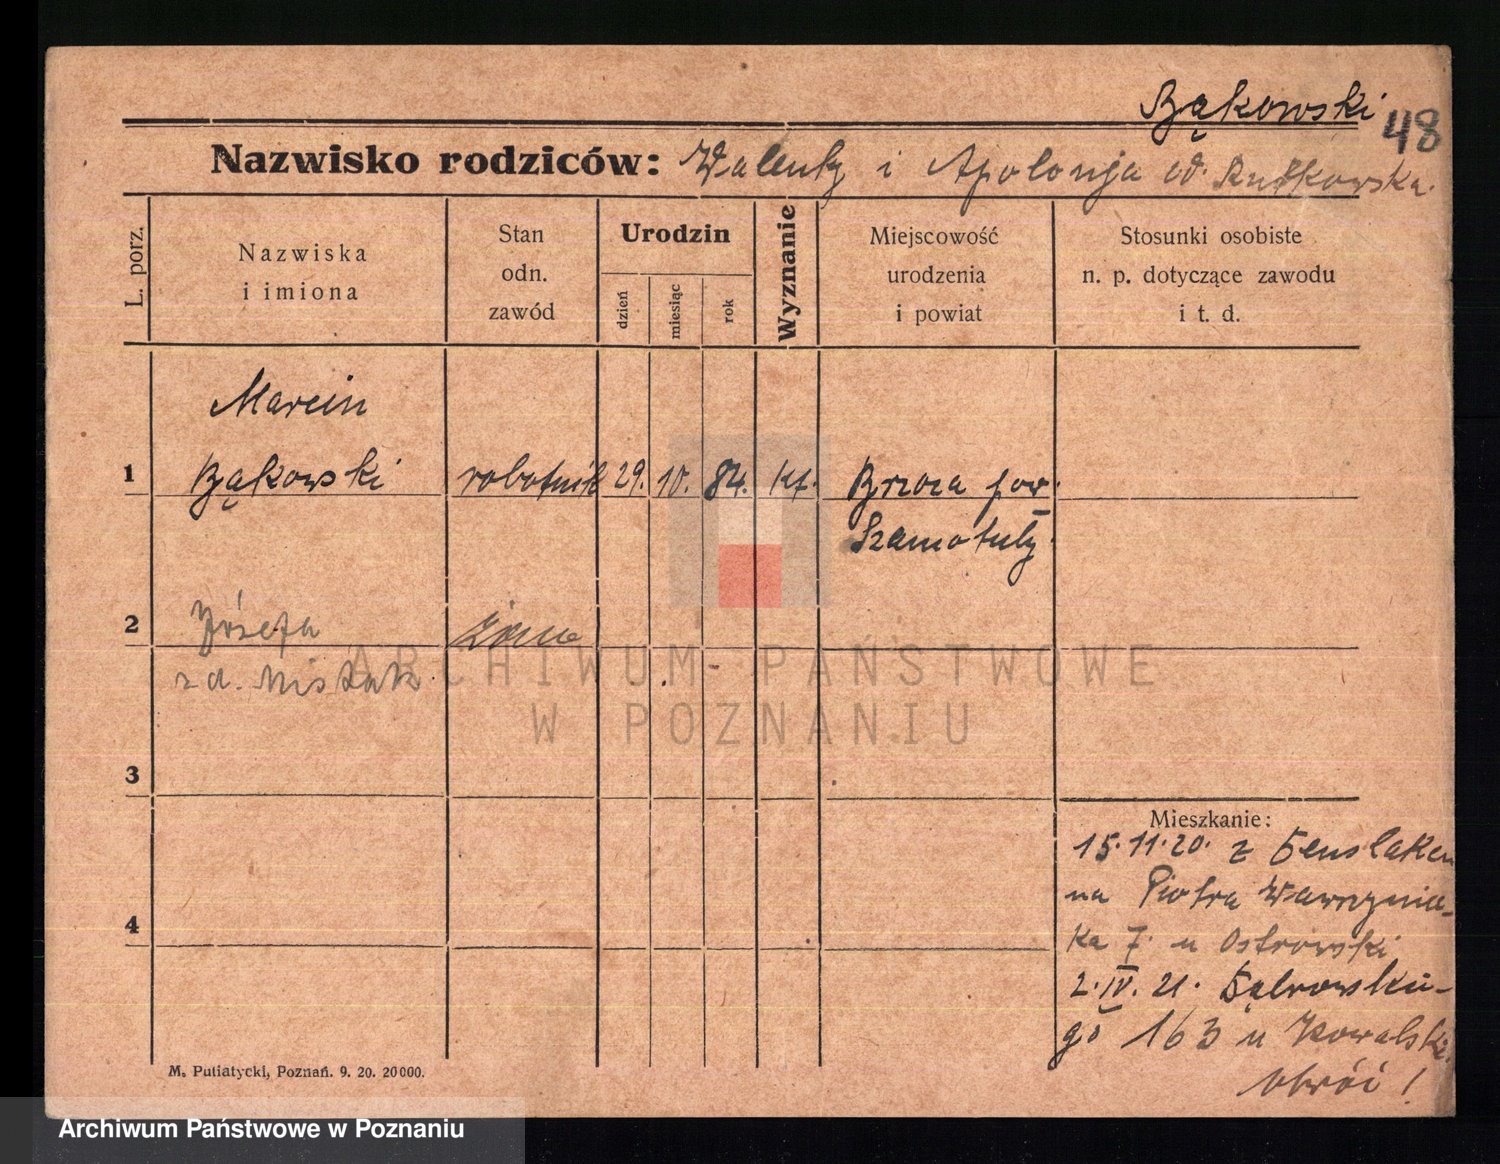 Bąkowski
48
Nazwisko rodziców: Walenty i Apolonja od. Rutkowska.
L. porz.
Nazwiska
i imiona
Stan
odn.
zawód
Urodzin
dzień
miesiąc
rok
Wyznanie
Miejscowość
urodzenia
i powiat
Stosunki osobiste
n. p. dotyczące zawodu
i t. d.
Marcin
1 Bąkowski robotnik 29. 10. 84. kt. Brzoza pow.
Szamotuły.
2 Józefa żona
z d.
3
4
Mieszkanie:
15.11.20. z
na Piotra Wawrzynia-
ka 7. u Ostrowski
2.IV.21. Dąbrowskie-
go 163 u Kowalski
obróć!
M. Putiatycki, Poznań. 9. 20. 20000.
ARCHIWUM PAŃSTWOWE
W POZNANIU
Archiwum Państwowe w Poznaniu